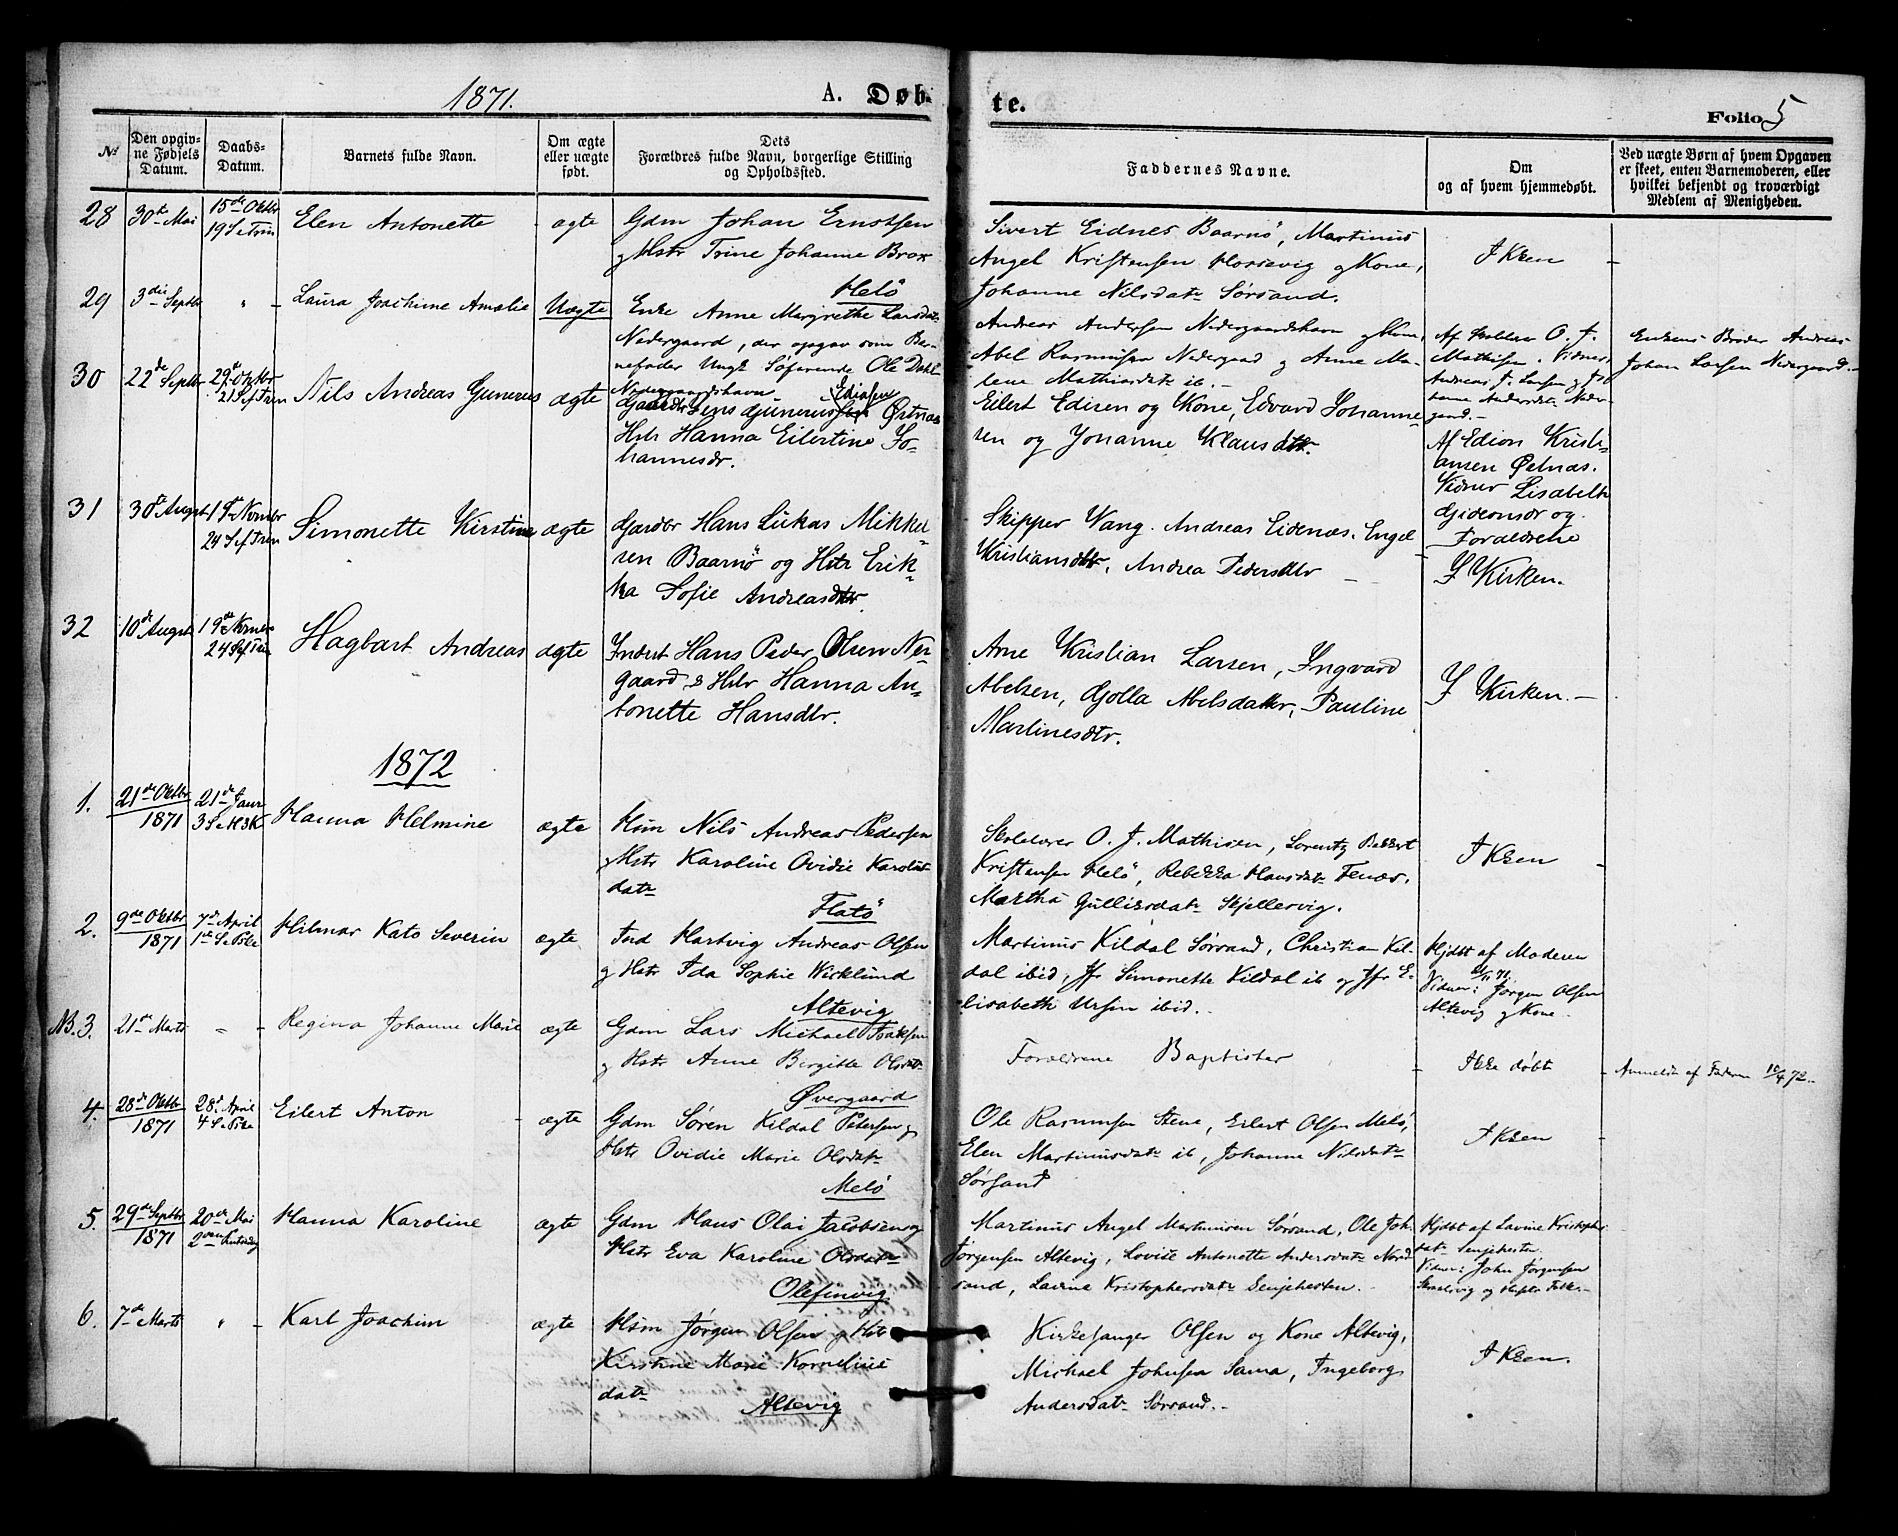 1871.
A. Døb-
te.
Folio 5
№
Den opgiv-
ne Fødsels
Datum.
Daabs-
Datum.
Barnets fulde Navn.
Om ægte
eller uægte
født.
Dets
Forældres fulde Navn, borgerlige Stilling
og Opholdssted.
Faddernes Navne.
Om
og af hvem hjemmedøbt.
Ved uægte Børn af hvem Opgaven
er skeet, enten Barnemoderen, eller
hvilket bekjendt og troværdigt
Medlem af Menigheden.
28
30te Mai
15de Oktbr
19 S e Trin
Elen Antonette
ægte
Gdm Johan Ernstsen
g Hstr Trine Johanne Brox
Helö
Sivert Eidnes Baarnö, Martinus
Angel Kristensen g Kone,
Johanne Nilsdatr Sörsand.
I Kken
29
3die Septbr
"
Laura Joachime Amalie
Uægte
Enke Anne Margrethe Larsdatr
Nedergaard, der opgav som Bar-
nefader Ungk Söfarende Ole Dahl
Nedergaardshavn
Andreas Andersen Nedergaardshavn g Kone,
Abel Rasmussen Nedergaard g Anne Ma-
lene Mathisdatr ib.
Af O. J.
Mathisen. Vidner
Andreas J. Larsen g Jo-
hanne Andersdatr Neder-
gaard.
Enkens Broder Andreas
Johan Larsen Nedergaard.
30
22de Septbr
29de Oktbr
21 S ef Trin
Nils Andreas Gunerus
ægte
Gaardbr Jens Gunerus Edisen
Hstr Hanna Eilertine Jo-
hannesdr.
Eilert Edisen og Kone, Edvard Johanne-
sen og Johanne Klausdtr.
Af Edion Kristi-
ansen
Vidner Lisabeth
Gideonsdr og
Forældrene
31
30te August
19de Novmbr
24 S ef Trin
Simonette Kirstine
ægte
Gardbr Hans Lukas Mikkel-
sen Baarnö og Hstr Erik-
ka Sofie Andreasdtr.
Skipper Vang. Andreas Eidenæs. Engel
Kristiansdtr. Andrea Pedersdtr
I Kirken.
32
10de August
19de Novmbr
24 S ef Trin
Hagbart Andreas
ægte
Inderst Hans Peder Olsen Ner-
gaard & Hstr Hanna An-
tonette Hansdtr.
Arne Kristian Larsen, Ingvard
Abelsen, Gjolla Abelsdatter, Pauline
Martinesdtr.
I Kirken.
1872
1.
21de Oktbr
1871
21de Janr
3 S e H3K
Hanna Helmine
ægte
Hsm Nils Andreas Pedersen
g Hstr Karoline Ovidie Karolus-
datr
Flatö
Skolelærer O. J. Mathisen, Lorentz
Kristensen Helö, Rebekka Hansdatr
Martha Gulliksdatr Skjellervig.
I Kken
2.
9de Oktbr
1871
7de April
1ste S e Pske
Hilmar Kato Severin
ægte
Ind Hartvig Andreas Olsen
g Hstr Ida Sophie Wicklund
Altevig
Martinus Kildal Sörsand, Christian Kil-
dal ibid, Jfr Simonette Kildal ib og Jfr E-
lisabeth Ursin ibid.
Hjdöbt af Moderen
Vidner: Jørgen Olsen
Altevig g Kone.
NB. 3.
21de Marts
"
Regina Johanne Marie
ægte
Gdm Lars Michael Isaksen
g Hstr Anne Birgitte Olsdatr
Øvergaard
Forældrene Baptister
Ikke döbt
Anmeldt af Faderen 10/4 72.
4.
28de Oktbr
1871
28de April
4 S e Pske
Eilert Anton
ægte
Gdm Sören Kildal Petersen g
Hstr Ovidie Marie Olsdatr
Melö
Ole Rasmussen Stene, Eilert Olsen Melö,
Elen Martinusdatr ib, Johanne Nilsdatr
Sörsand
I Kken
5.
29de Septbr
1871
20de Mai
2den Pintsedag
Hanna Karoline
ægte
Gdm Hans Olai Jacobsen g
Hstr Eva Karoline Olsdatr
Olefinvig
Martinus Angel Martinusen Sörsand, Ole Joh.
Jørgensen Altevig, Lovise Antonette Andersdatr Nord-
sand, Lavine Kristophersdatr Senjehesten.
Hjdöbt af Lavine Kristophers-
datr Senjehesten.
Vidner: John Jørgensen
6.
7de Marts
"
Karl Joachim
ægte
Hsm Jørgen Olsen g Hstr
Kirstine Marie Kornelius-
datr
Altevig
Kirkesanger Olsen og Kone Altevig,
Michael Johnsen Sama, Ingeborg
Andersdatr Sörsand.
I Kken.